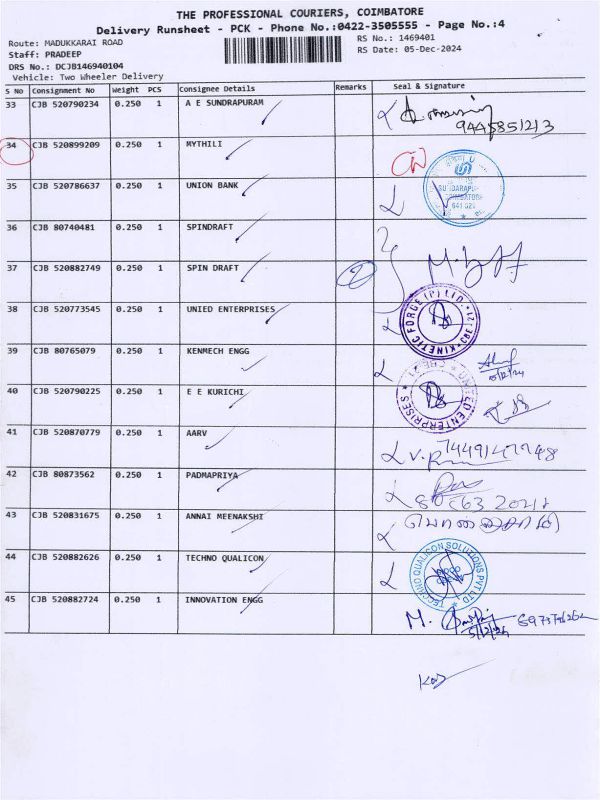 THE PROFESSIONAL COURIERS, COIMBATORE
Delivery Runsheet - PCK - Phone No.:0422-3505555 - Page No.:4
Route: MADUKKARAI ROAD RS No.: 1469401
Staff: PRADEEP RS Date: 05-Dec-2024
DRS No.: DCJB146940104
Vehicle: Two Wheeler Delivery
S No Consignment No Weight PCS Consignee Details Remarks Seal & Signature
33 CJB 520790234 0.250 1 A E SUNDRAPURAM
9445851213
34 CJB 520899209 0.250 1 MYTHILI
35 CJB 520786637 0.250 1 UNION BANK
36 CJB 80740481 0.250 1 SPINDRAFT
37 CJB 520882749 0.250 1 SPIN DRAFT 2
38 CJB 520773545 0.250 1 UNIED ENTERPRISES KINETIC FORGE (P) LTD.
39 CJB 80765079 0.250 1 KENMECH ENGG 5/12/24
40 CJB 520790225 0.250 1 E E KURICHI UNITED ENTERPRISES
41 CJB 520870779 0.250 1 AARV
42 CJB 80873562 0.250 1 PADMAPRIYA
43 CJB 520831675 0.250 1 ANNAI MEENAKSHI
44 CJB 520882626 0.250 1 TECHNO QUALICON TECHNO QUALICON SOLUTIONS PVT LTD
45 CJB 520882724 0.250 1 INNOVATION ENGG
5/12/24